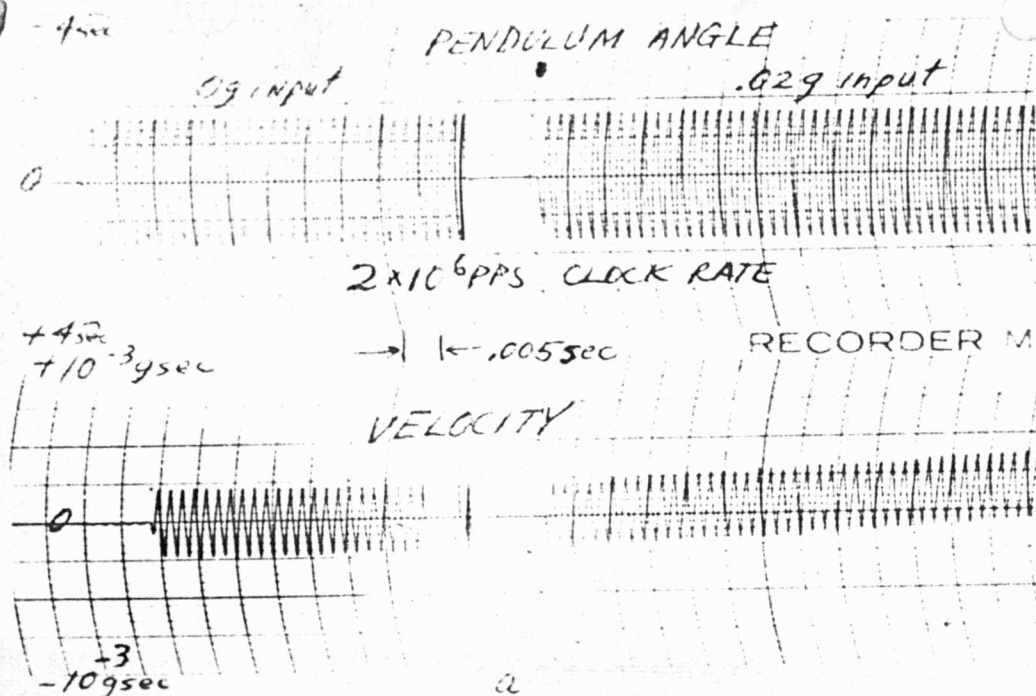 -4 sec
PENDULUM ANGLE
0g input
.02g input
0
2×10⁶ PPS CLOCK RATE
+4 sec
+10⁻³ gsec
→| |← .005 sec
RECORDER M
VELOCITY
0
-10⁻³ gsec
a